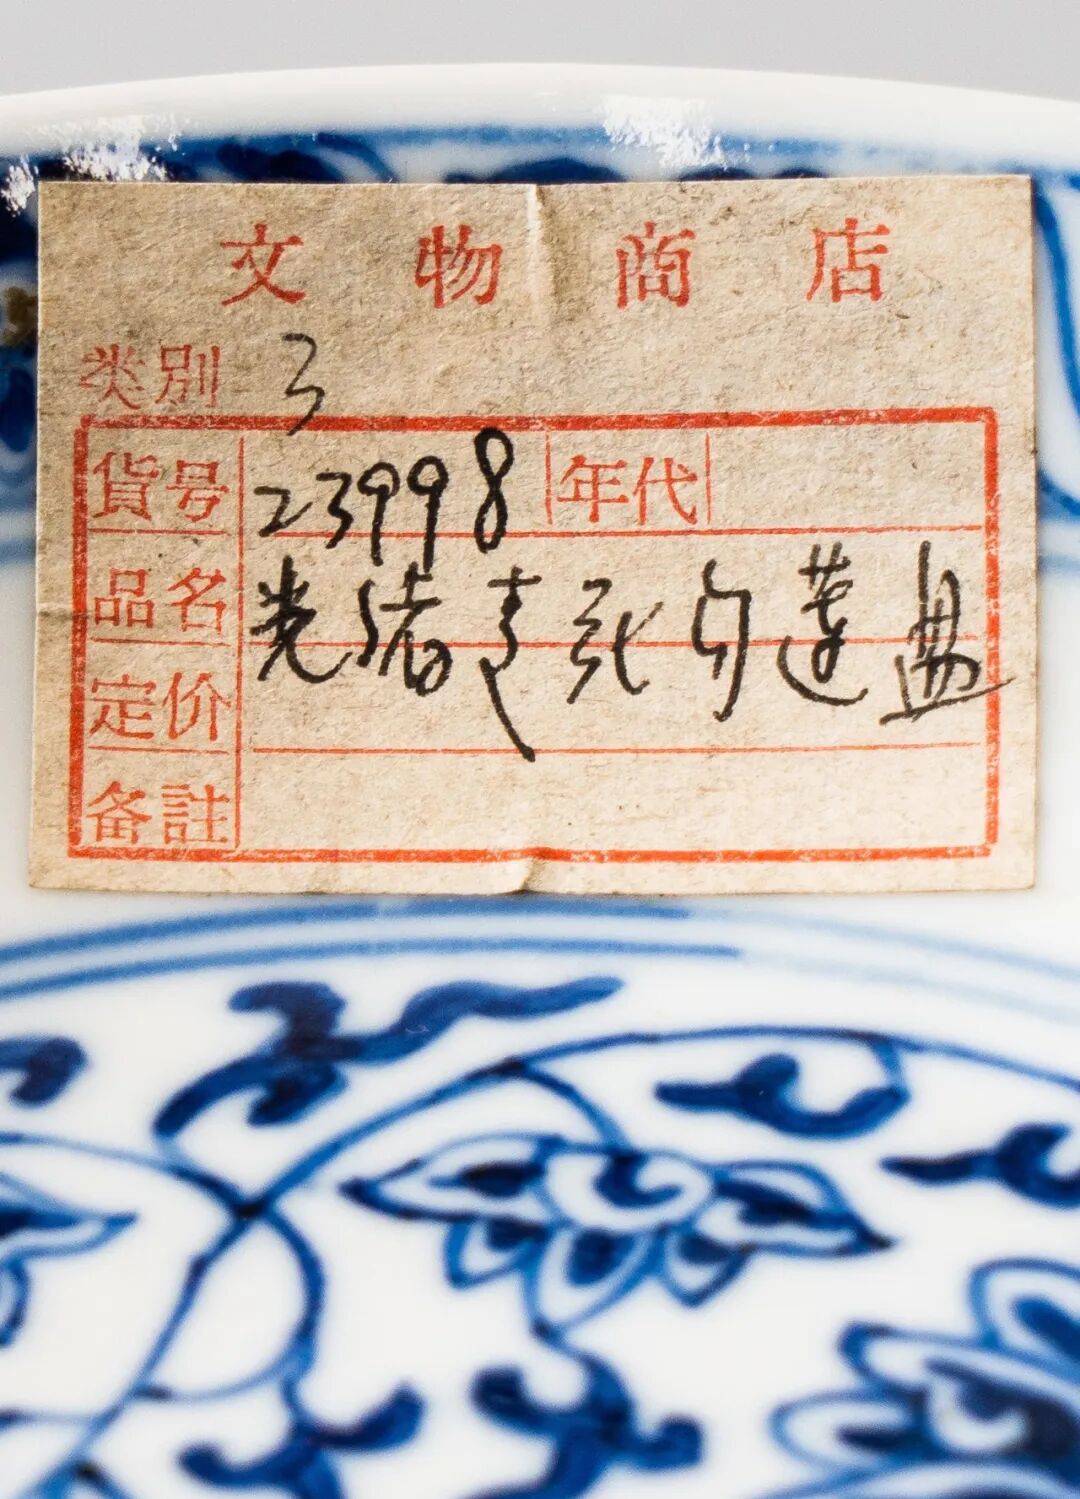 文物商店
类別 3
貨号 23998 年代
品名 光绪青花勾莲盘
定价
备註